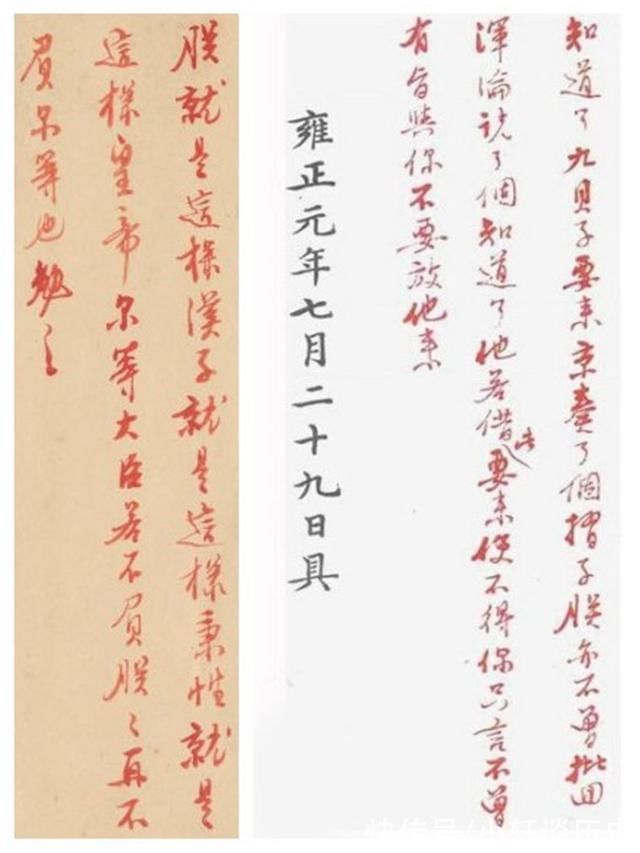 朕就是這樣漢子就是這樣秉性就是
這樣皇帝尔等大臣若不負朕〻再不
負尔等也勉之
知道了九貝子要来京奏了個摺子朕亦不曾批回
渾淪説了個知道了他若借此要来使不得你只言不曾
有旨與你不要放他来
雍正元年七月二十九日具
快传号/小轩谈历史